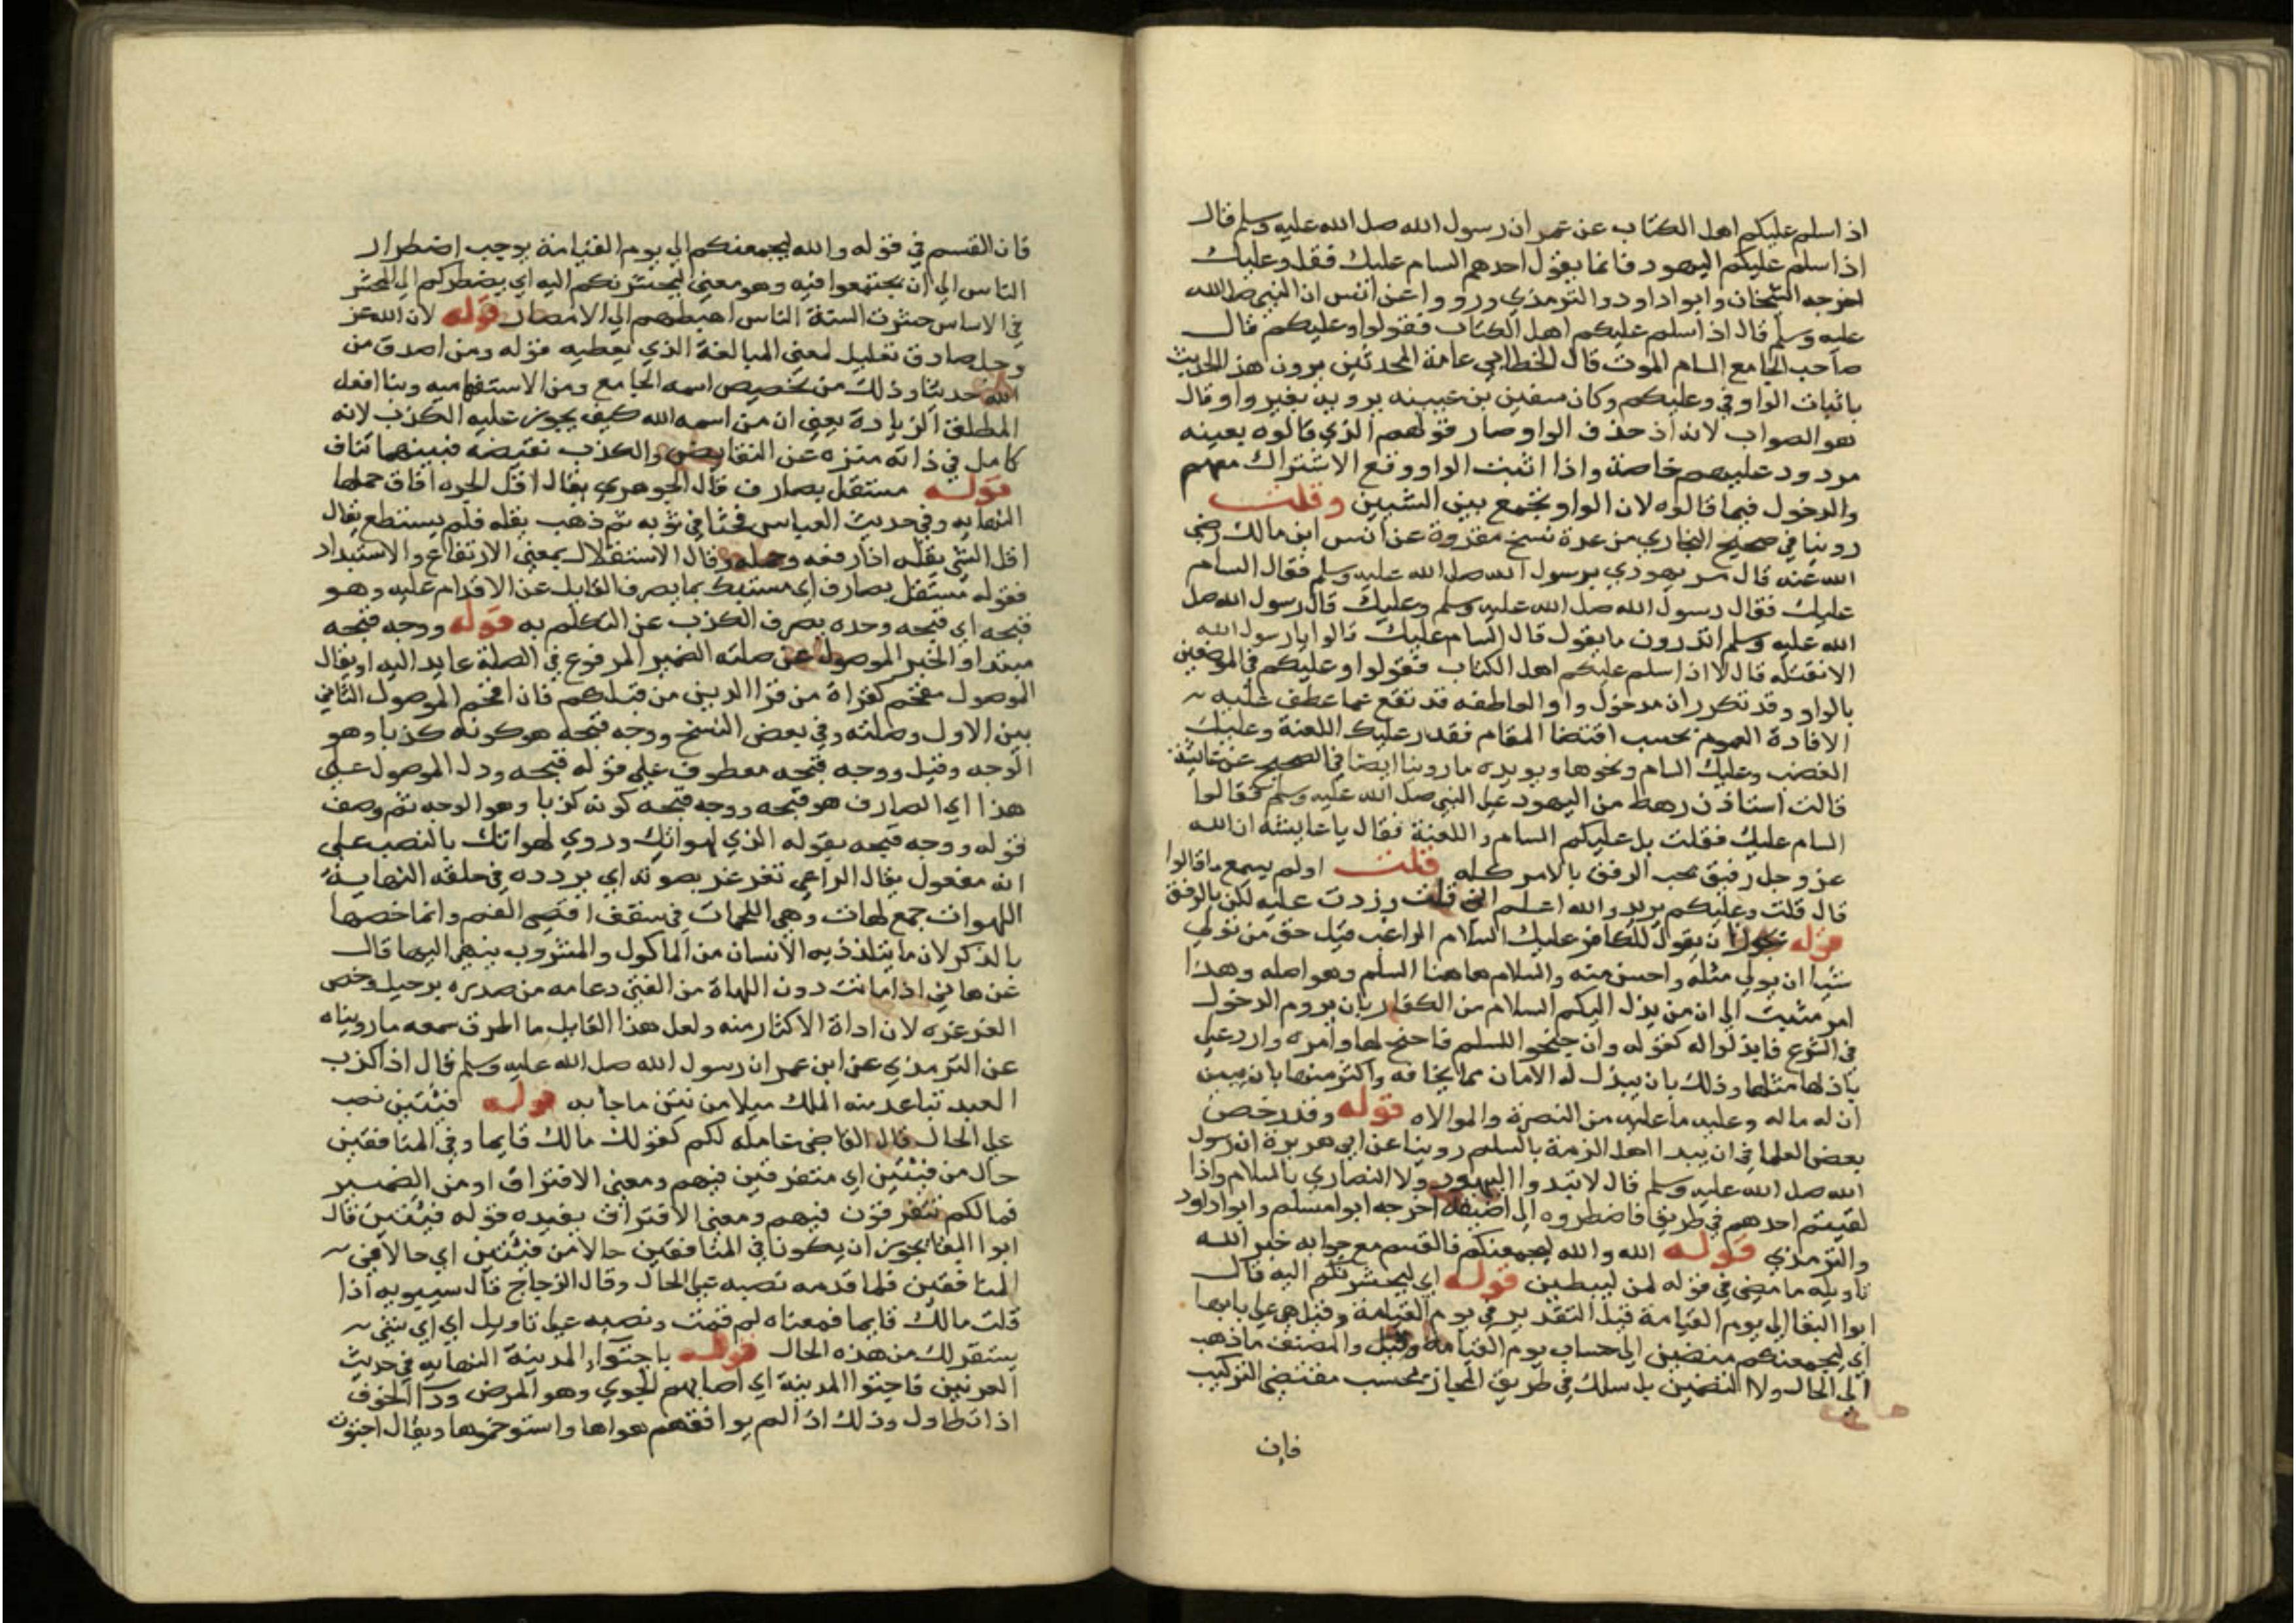 اذا سلم عليكم اهل الكتاب عن عمر ان رسول الله صلى الله عليه وسلم قال
اذا سلم عليكم اليهود فانما يقول احدهم السام عليك فقل وعليك
اخرجه الشيخان وابوا داود والترمذي ورووا عن انس ان النبي صلى الله
عليه وسلم قال اذا سلم عليكم اهل الكتاب فقولوا وعليكم قال
صاحب الجامع السام الموت قال الخطابي عامة المحدثين يروون هذا الحديث
باثبات الواو في وعليكم وكان سفين بن عيينه يرويه بغير واو وقال
هو الصواب لانه اذ حذف الواو صار قولهم الذي قالوه بعينه
مردود عليهم خاصة واذا اثبت الواو وقع الاشتراك معهم
والدخول فيما قالوه لان الواو تجمع بين الشيين وقلت
روينا في صحيح البخاري من عدة نسخ مقروة عن انس ابن مالك رضي
الله عنه قال مر يهودي برسول الله صلى الله عليه وسلم فقال السام
عليك فقال رسول الله صلى الله عليه وسلم وعليك قال رسول الله صلى
الله عليه وسلم اتدرون ما يقول قال السام عليك قالوا يا رسول الله
الا نقتله قال لا اذا سلم عليكم اهل الكتاب فقولوا وعليكم في الموضعين
بالواو وقد تكرر ان مدخول واو العاطفه قد تقع عما عطف عليه
الافادة العموم بحسب اقتضا المقام فقدر عليك اللعنة وعليك
الغضب وعليك السام ونحوها ويويده ما روينا ايضا في الصحيح عن عايشة
قالت استاذن رهط من اليهود على النبي صلى الله عليه وسلم فقالوا
السام عليك فقلت بل عليكم السام واللعنة فقال يا عايشه ان الله
عز وجل رفيق يحب الرفق بالامر كله قلت اولم يسمع ما قالوا
قال قلت وعليكم يريد والله اعلم اني قلت وزدت عليه لكن بالرفق
قوله نجوز ان يقول للكافر عليك السلام الراغب قيل حق من تولي
شيا ان يولي مثله واحسن منه والسلام هاهنا السلم وهو اصله وهذا
امر مثبت الى ان من بذل اليكم السلام من الكفار بان يروم الدخول
في الشرع فابذلوا له كقوله وان جنحوا للسلم فاجنح لها وامره وارد على
ياذلها مثلها وذلك بان يبذل له الامان مما يخافه واكثر منها بان يبين
ان له ماله وعليه ما عليه من النصرة والموالاه قوله وقد رخص
بعض العلما في ان يبدا اهل الذمة بالسلم روينا عن ابي هريرة ان رسول
الله صلى الله عليه وسلم قال لا تبدوا اليهود ولا النصاري بالسلام واذا
لقيتم احدهم في طريق فاضطروه الى اضيقه اخرجه ابوا مسلم وابوا داود
والترمذي قوله الله والله ليجمعنكم فالقسم مع جوابه خبر الله
تاويله ما مضى في قوله لمن ليبطين قوله اي ليحشرنكم اليه قال
ابوا البقا الى يوم القيامة قيل التقدير في يوم القيامة وقيل هي على بابها
اي ليجمعنكم منضين الى حساب يوم القيامة وقيل والمصنف ما ذهب
الى الحال ولا التضمين بل سلك في طريق المجاز بحسب مقتضى التركيب
فان
فان القسم في قوله والله ليجمعنكم الى يوم القيامة يوجب اضطرار
الناس الى ان يجتمعوا فيه وهو معنى ليحشرنكم اليه اي يضطركم الى المحشر
في الاساس حشرت السنة الناس اهبطهم الى الامصار قوله لان الله عز
وجل صادق تعليل لمعنى المبالغة الذي يعطيه قوله ومن اصدق من
الله حديثا وذلك من تخصيص اسمه الجامع ومن الاستفهاميه وبنا افعل
المطلق الزيادة يعني ان من اسمه الله كيف يجوز عليه الكذب لانه
كامل في ذاته منزه عن النقايص والكذب نقيضه فبينهما تناف
قوله مستقل بصارف قال الجوهري يقال اقل الجره اطاق حملها
النهايه وفي حديث العباس فحثا في ثوبه ثم ذهب يقله فلم يستطع يقال
اقل الشي يقله اذا رفعه وحمله وقال الاستقلال بمعنى الارتفاع والاستبداد
فقوله مستقل بصارف اي مستبد بما يصرف القايل عن الاقدام عليه وهو
قبحه اي قبحه وحده يصرف الكذب عن التكلم به قوله ووجه قبحه
مبتدا والخبر الموصول عن صلته الضمير المرفوع في الصلة عايد اليه او يقال
الموصول مفخم كقراة من قرا الذين من قبلكم فان اقحم الموصول الثاني
بين الاول وصلته وفي بعض النسخ ووجه قبحه هو كونه كذبا وهو
الوجه وقيل ووجه قبحه معطوف على قوله قبحه ودل الموصول على
هذا اي الصارف هو قبحه ووجه قبحه كونه كذبا وهو الوجه ثم وصف
قوله ووجه قبحه بقوله الذي لهواتك وروي لهواتك بالنصب على
انه مفعول يقال الراعي تغرغر بصوته اي يردده في حلقه النهاية
اللهوات جمع لهات وهي اللحمات في سقف اقصى الفم وانما خصها
بالذكر لان ما يتلذذ به الانسان من الماكول والمشروب ينهي اليها قال
عن هاني اذا مانت دون اللهاة من الفتى دعا همه من صدره برحيل وخص
الغرغره لان اداة الاكثار منه ولعل هذا القايل ما طرق سمعه ما رويناه
عن الترمذي عن ابن عمر ان رسول الله صلى الله عليه وسلم قال اذا كذب
العبد تباعد منه الملك ميلا من نتن ما جا به قوله فيتين نصب
على الحال قال القاضي عامله لكم كقولك مالك قايما وفي المنافقين
حال من فيتين اي متفرقين فيهم ومعنى الافتراق او من الضمير
فما لكم تتفرقون فيهم ومعنى الافتراق يفيده قوله فيتين قال
ابوا البقا يجوز ان يكونا في المنافقين حالا من فيتين اي حالا في
المنافقين فلما قدمه نصبه على الحال وقال الزجاج قال سيبويه اذا
قلت مالك قايما فمعناه لم قمت ونصبه على تاويل اي اي شي
يستقر لك من هذه الحال قوله باجتوا المدينة النهايه في حديث
العرنيين فاجتووا المدينة اي اصابهم الجوي وهو المرض ودا الجوف
اذا تطاول وذلك اذا لم يوافقهم هواها واستوخموها ويقال اجتويت